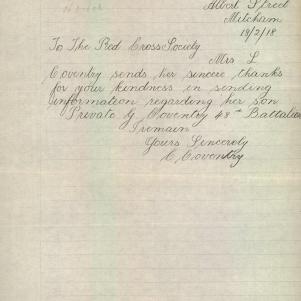 Albert Street
Mitcham
18/2/18
To The Red Cross Society
Mrs L
Coventry sends her sincere thanks
for your kindness in sending
information regarding her son
Private G. Coventry 48th Battalion
I remain
Yours Sincerely
C Coventry